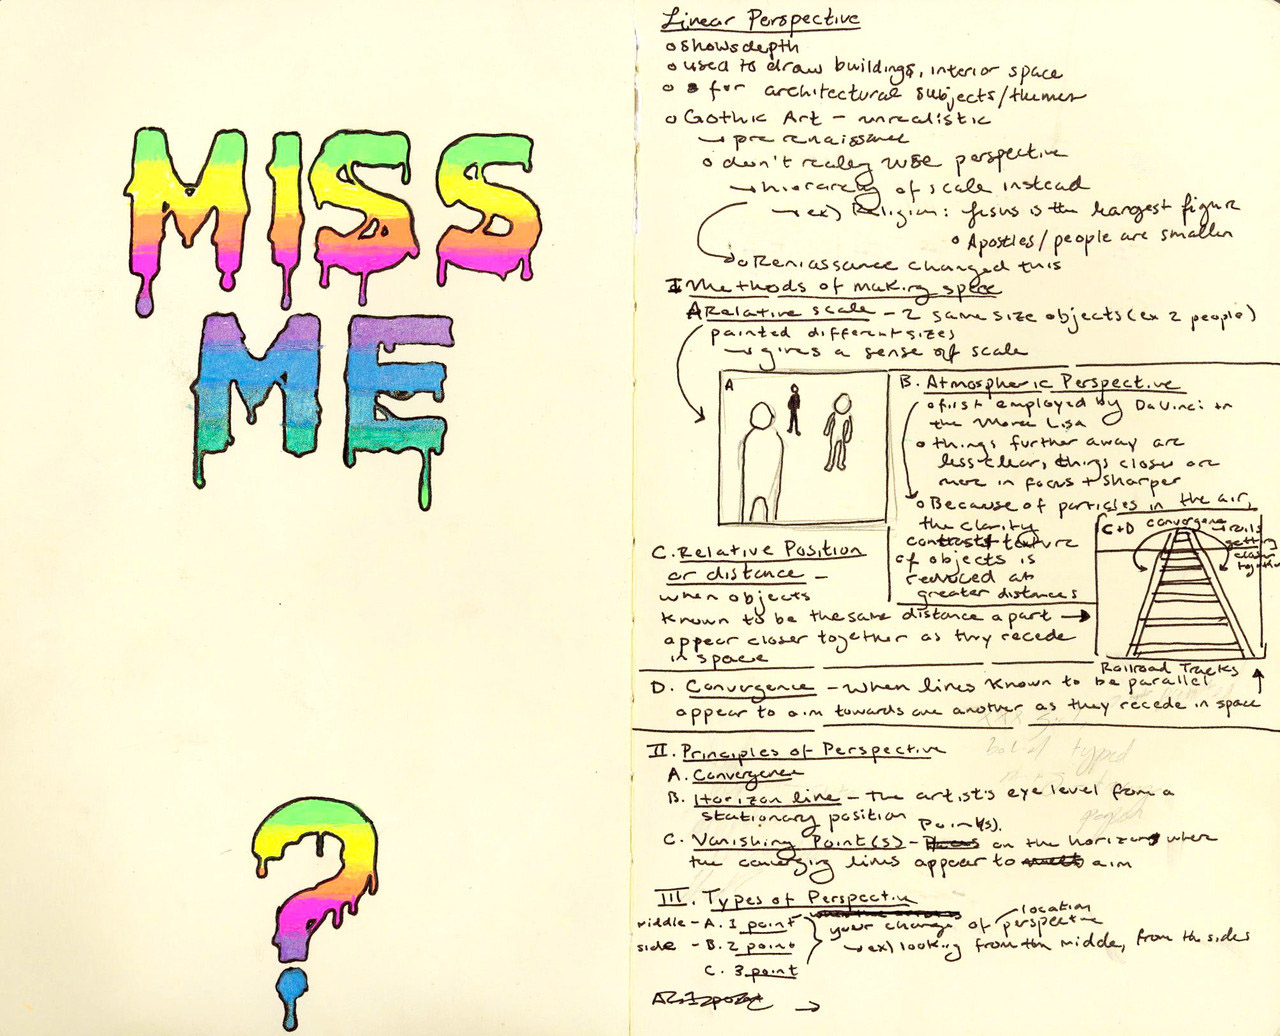 MISS
ME
?
Linear Perspective
o shows depth
o used to draw buildings, interior space
o for architectural subjects/themes
o Gothic Art - unrealistic
→ pre renaissance
o didn't really use perspective
→ hierarchy of scale instead
→ ex) Religion: Jesus is the largest figure
o Apostles/people are smaller
o Reniassance changed this
I Methods of making space
A Relative scale - 2 same size objects (ex 2 people)
painted different sizes
→ gives a sense of scale
A
B. Atmospheric Perspective
o first employed by DaVinci in
the Mona Lisa
o things further away are
less clear, things closer are
more in focus + sharper
o Because of particles in the air,
the clarity
contrast + texture
of objects is
reduced at
greater distances
C. Relative Position
or distance -
when objects
known to be the same distance apart →
appear closer together as they recede
in space
C+D convergence → rails
getting
closer
together
Railroad Tracks
D. Convergence - when lines known to be parallel
appear to aim towards one another as they recede in space
II. Principles of Perspective
A. Convergence
B. Horizon line - the artist's eye level from a
stationary position
C. Vanishing Point(s) - Point(s). on the horizon where
the converging lines appear to aim
III. Types of Perspective
middle - A. 1 point
side - B. 2 point
C. 3 point
your change of perspective
location
→ ex) looking from the middle, from the sides
→